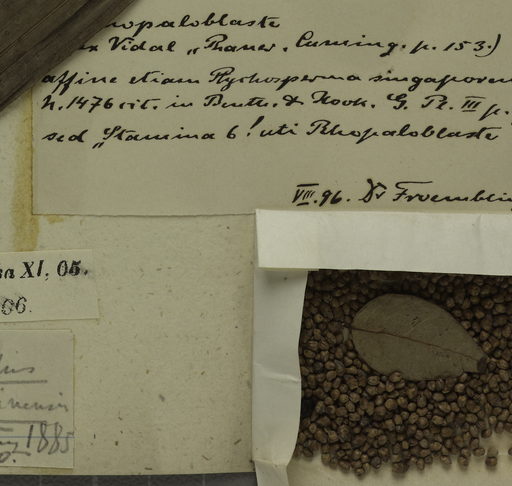 Vidal „Phaner. Cuming. p. 153.)
affine etiam Ptychosperma singaporen
N. 1476 cit. in Benth. & Hook. G. Pl. III p.
sed „Stamina 6! uti Rhopaloblaste
VIII. 96. Dr Froembling
XI, 05.
06.
inensis
1885